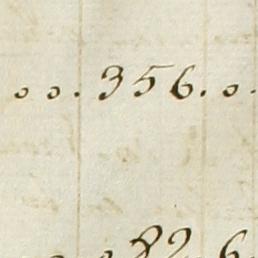 o o . 356 . o .
82 . 6